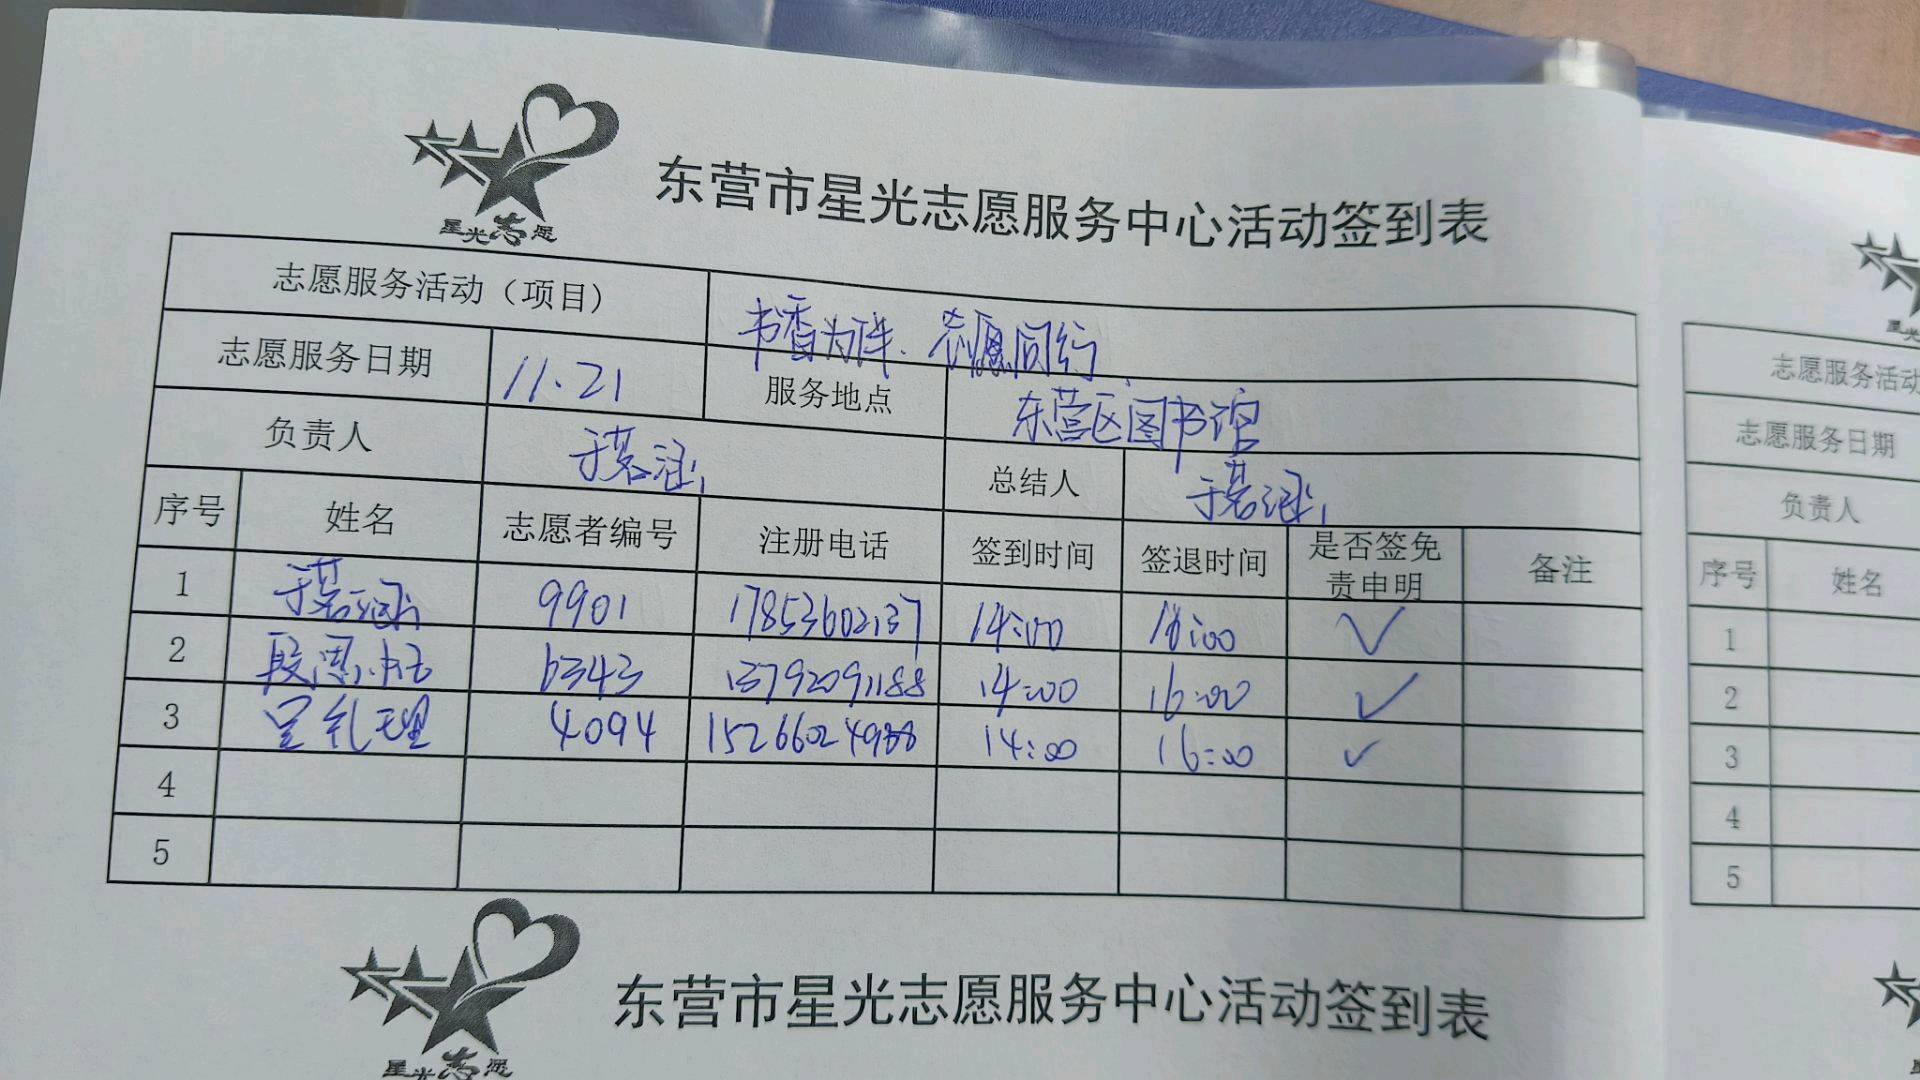 星光志愿
东营市星光志愿服务中心活动签到表
志愿服务活动（项目） 书香为伴、志愿同行
志愿服务日期 11.21 服务地点 东营区图书馆
负责人 于茗涵 总结人 于茗涵
序号 姓名 志愿者编号 注册电话 签到时间 签退时间 是否签免责申明 备注
1 于茗涵 9901 17853602137 14:00 16:00 ✓
2 段思 6343 13792091188 14:00 16:00 ✓
3 4094 15266024988 14:00 16:00 ✓
4
5
星光志愿
东营市星光志愿服务中心活动签到表
志愿服务活动
志愿服务日期
负责人
序号 姓名
1
2
3
4
5